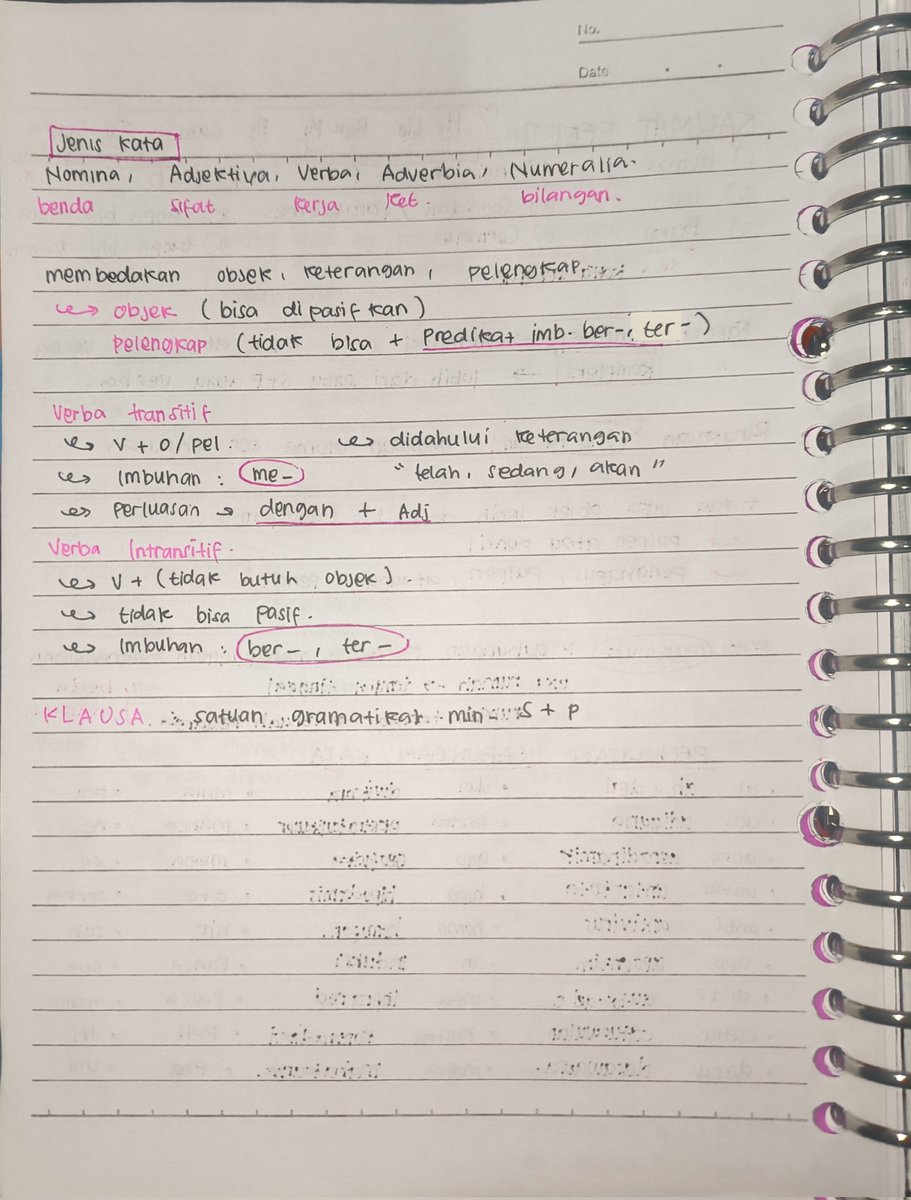 No.
Date
Jenis kata
Nomina, Adjektiva, Verba, Adverbia, Numeralia.
benda sifat kerja ket. bilangan.
membedakan objek, keterangan, pelengkap
↪ objek (bisa dipasifkan)
pelengkap (tidak bisa + predikat imb. ber-, ter-)
Verba transitif
↪ V + O/pel. ↪ didahului keterangan
↪ Imbuhan : me- "telah, sedang, akan"
↪ perluasan → dengan + Adj
Verba Intransitif.
↪ V + (tidak butuh objek).
↪ tidak bisa pasif.
↪ Imbuhan : ber-, ter-
KLAUSA satuan gramatikal min S + P